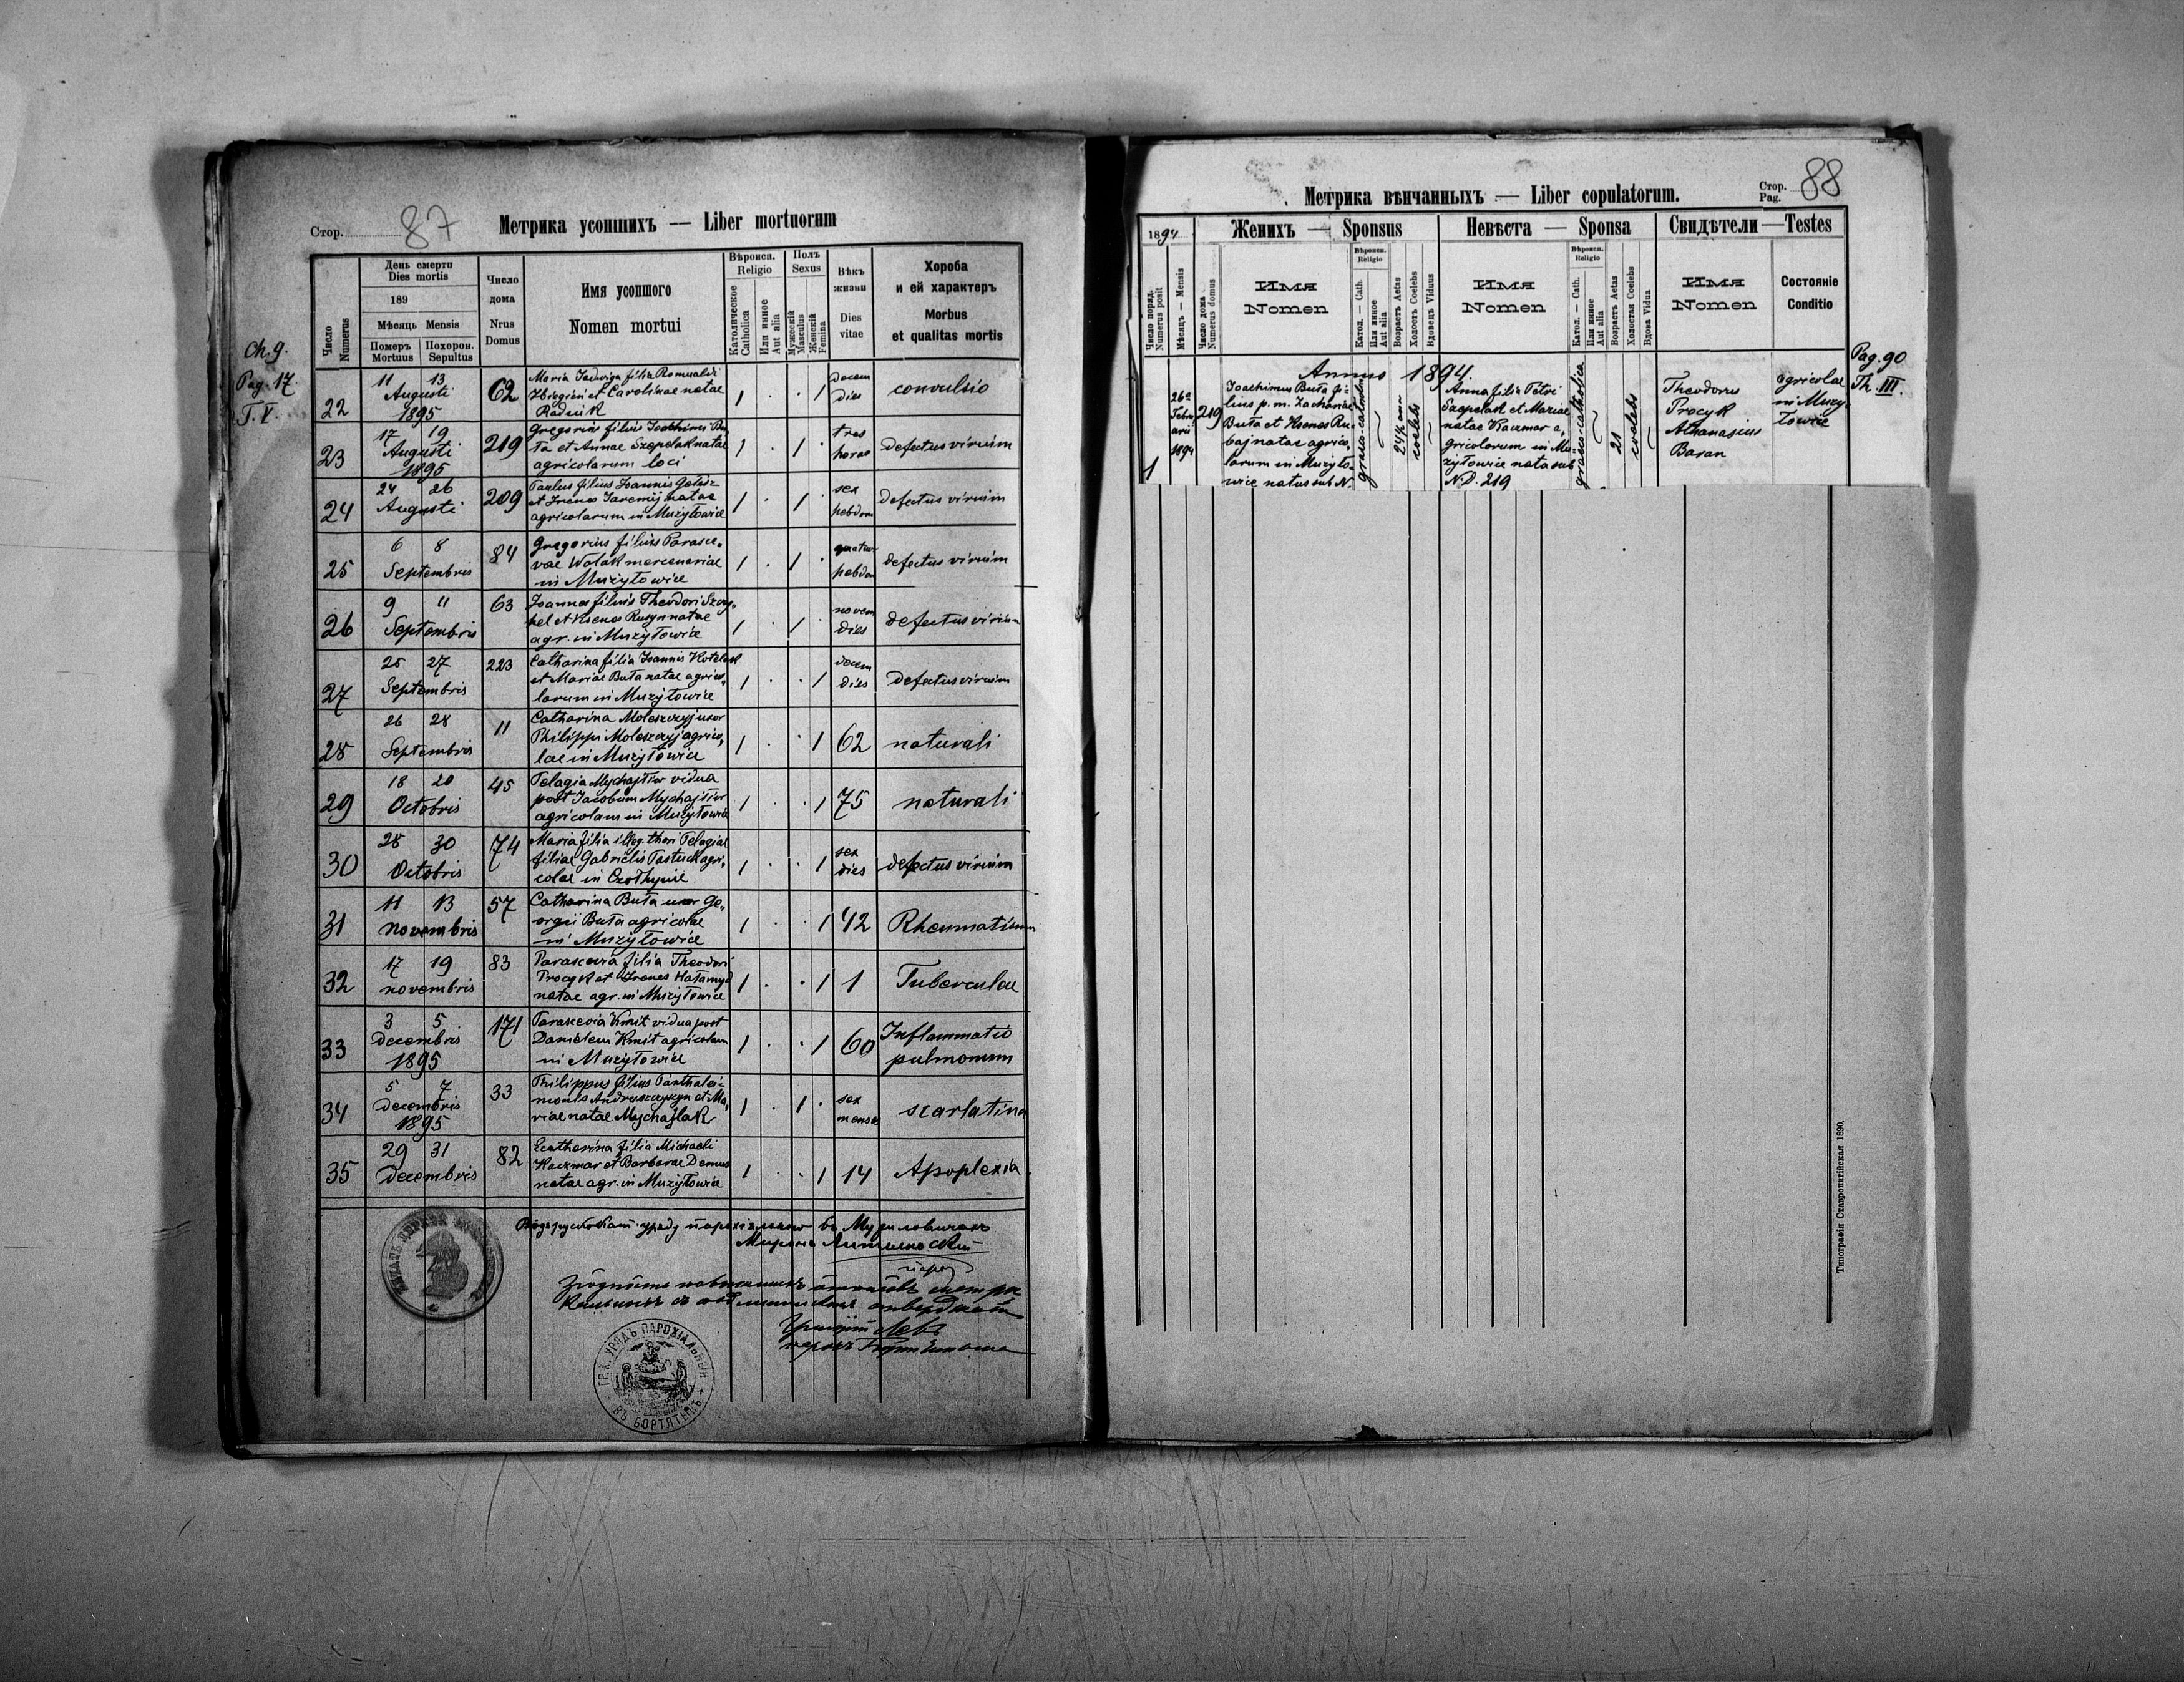 Стор. 87
Метрика усопшихъ — Liber mortuorum
Число Numerus
День смерти
Dies mortis
189
Мѣсяць Mensis
Померъ Mortuus
Похорон. Sepultus
Число дома
Nrus Domus
Имя усопшого
Nomen mortui
Вѣроисп.
Religio
Католическое Catholica
Или инное Aut alia
Полъ
Sexus
Мужескій Masculus
Женскій Femina
Вѣкъ жизни
Dies vitae
Хороба
и ей характеръ
Morbus
et qualitas mortis
Ch. 9.
Pag. 17.
T. V.
22
11 13
Augusti
1895
62
Maria Jadwiga filia Romualdi
et Carolinae natae
Radnik
1 . . 1
decem
dies
convulsio
23
17 19
Augusti
1895
219
Gregorius filius Joachimi Bu
ta et Annae Szepelak natae
agricolarum loci
1 . 1
tres
horae
defectus virium
24
24 26
Augusti
209
Paulus filius Joannis
et Irenes Jaremij natae
agricolarum in Mużyłowice
1 . 1
sex
hebdom
defectus virium
25
6 8
Septembris
84
Gregorius filius Parasce„
vae Wolak mercenariae
in Mużyłowice
1 . 1
quatuor
hebdom
defectus virium
26
9 11
Septembris
63
Joannes filius Theodori
et Ksenes Rusyn natae
agr. in Mużyłowice
1 . 1
novem
dies
defectus virium
27
25 27
Septembris
223
Catharina filia Joannis
et Mariae Buta natae agrico„
larum in Mużyłowice
1 . . 1
decem
dies
defectus virium
28
26 28
Septembris
11
Catharina Moleszczyj uxor
Philippi Moleszczyj agrico„
lae in Mużyłowice
1 . . 1
62
naturali
29
18 20
Octobris
45
Pelagia Mychajłiw vidua
post Jacobum Mychajłiw
agricolam in Mużyłowice
1 . . 1
75
naturali
30
28 30
Octobris
74
Maria filia illeg. thori Pelagiae
filiae Gabrielis Pastuch agri„
colae in
1 . . 1
sex
dies
defectus virium
31
11 13
novembris
57
Catharina Buta uxor Ge„
orgii Buta agricolae
in Mużyłowice
1 . . 1
42
Rheumatismus
32
17 19
novembris
83
Parascevia filia Theodori
Procyk et Irenes
natae agr. in Mużyłowice
1 . . 1
1
Tuberculae
33
3 5
decembris
1895
171
Parascevia Kmit vidua post
Danielem Kmit agricolam
in Mużyłowice
1 . . 1
60
Inflammatio
pulmonum
34
5 7
decembris
1895
33
Philippus filius Panthalei„
monis Andruszczyszyn et Ma„
riae natae Mychajlak
1 . 1 .
sex
menses
scarlatina
35
29 31
Decembris
82
Ecatherina filia Michaeli
Kaczmar et Barbarae Demus
natae agr. in Mużyłowice
1 . . 1
14
Apoplexia
ГР. К. УРЯДЪ ПАРОХІАЛЬНЫЙ
ВЪ БОРТЯТЫНѢ
Стор.
Pag. 88
Метрика вѣнчанныхъ — Liber copulatorum.
1894
Женихъ — Sponsus
Невѣста — Sponsa
Свидѣтели — Testes
Число поряд. Numerus posit
Мѣсяць — Mensis
Число дома Numerus domus
Имя
Nomen
Вѣроисп.
Religio
Катол. — Cath.
Или инное Aut alia
Возрастъ Aetas
Холостъ Coelebs
Вдовецъ Viduus
Имя
Nomen
Вѣроисп.
Religio
Катол. — Cath.
Или инное Aut alia
Возрастъ Aetas
Холостая Coelebs
Вдова Vidua
Имя
Nomen
Состояніе
Conditio
Annus 1894.
1
26ª
Febru
arii
1894
219
Joachimus Buta fi„
lius p. m. Zachariae
Buta et Ksenes Ru
baj natae agrico„
larum in Mużyło„
wice natus sub N.
graeco catholica
24½ ann
coelebs
Anna filia Petri
Szepelak et Mariae
natae Kaczmar a„
gricolarum in Mu„
żyłowice nata sub
N. D. 219
graeco-catholica
21
coelebs
Theodorus
Procyk
Athanasius
Baran
agricolae
in Muży„
łowice
Pag. 90
Th. III.
Типографія Ставропигійская 1890.